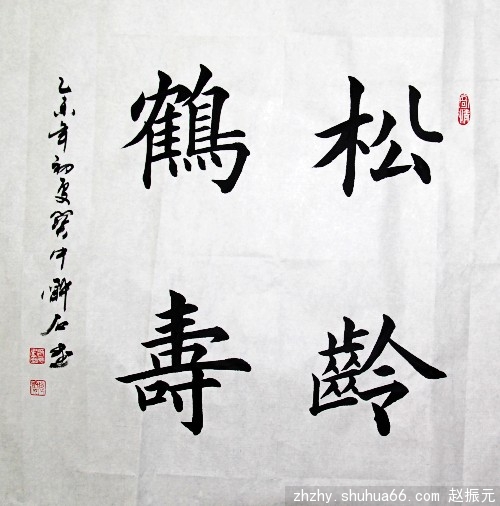 松齡
鶴壽
乙未年初夏
zhzhy.shuhua66.com 赵振元